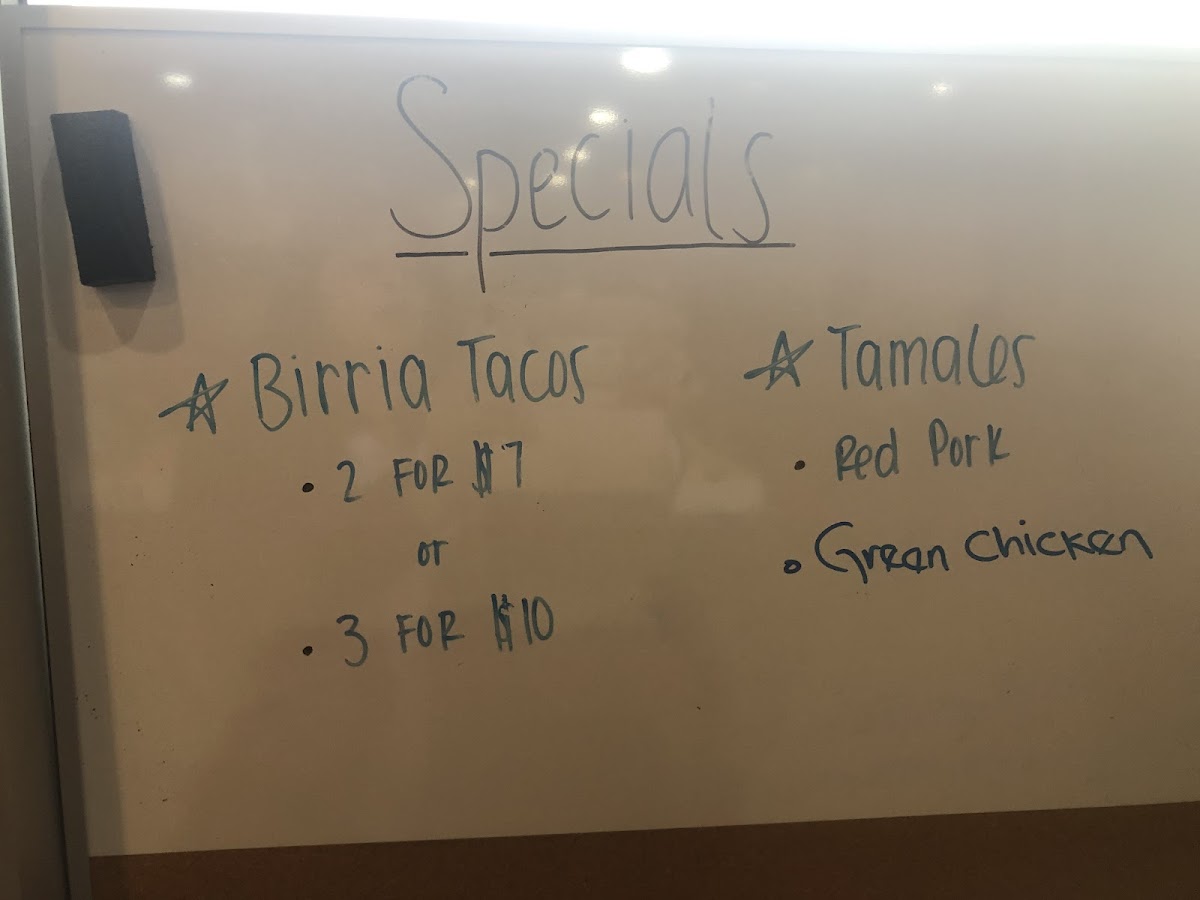 Specials
☆ Birria Tacos
• 2 FOR $7
or
• 3 FOR $10
☆ Tamales
• Red Pork
• Green Chicken